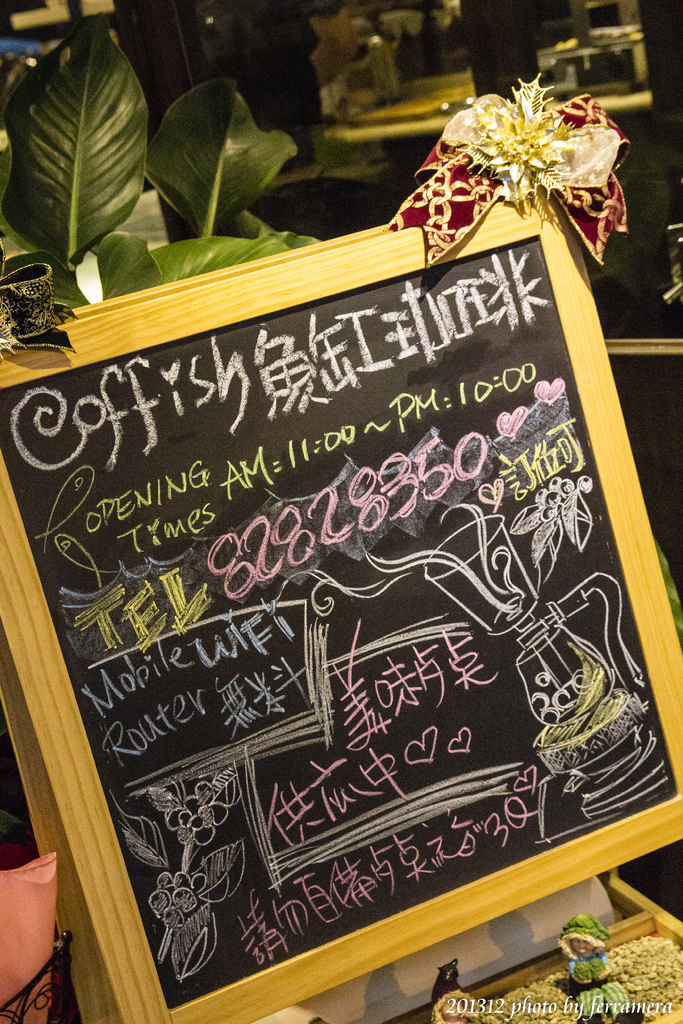 Coffish 魚缸珈琲
OPENING Times AM:11:00~PM:10:00
TEL 82828350 訂位可
Mobile WiFi
Router 無料
美味
供应中
請勿自備
201312 photo by ferramera